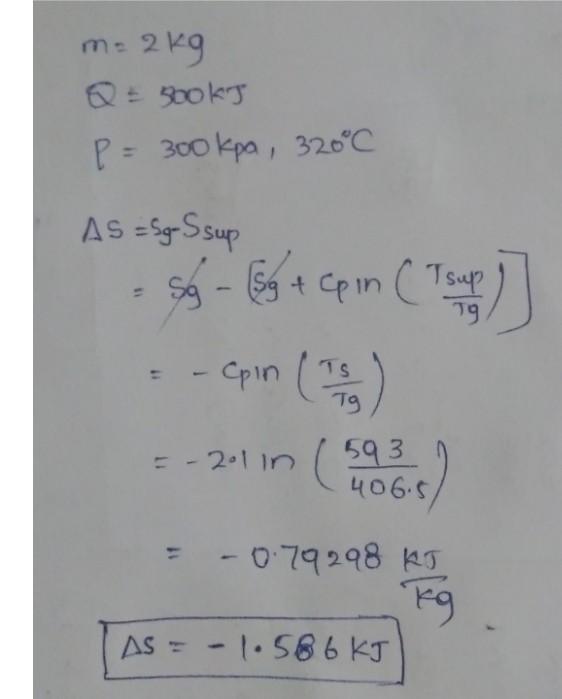 m = 2 kg
Q = 500 kJ
P = 300 kpa, 320°C
ΔS = Sg - Ssup
= Sg - [Sg + Cp ln (Tsup/Tg)]
= - Cp ln (Ts/Tg)
= - 2.1 ln (593/406.5)
= - 0.79298 kJ/kg
ΔS = - 1.586 kJ